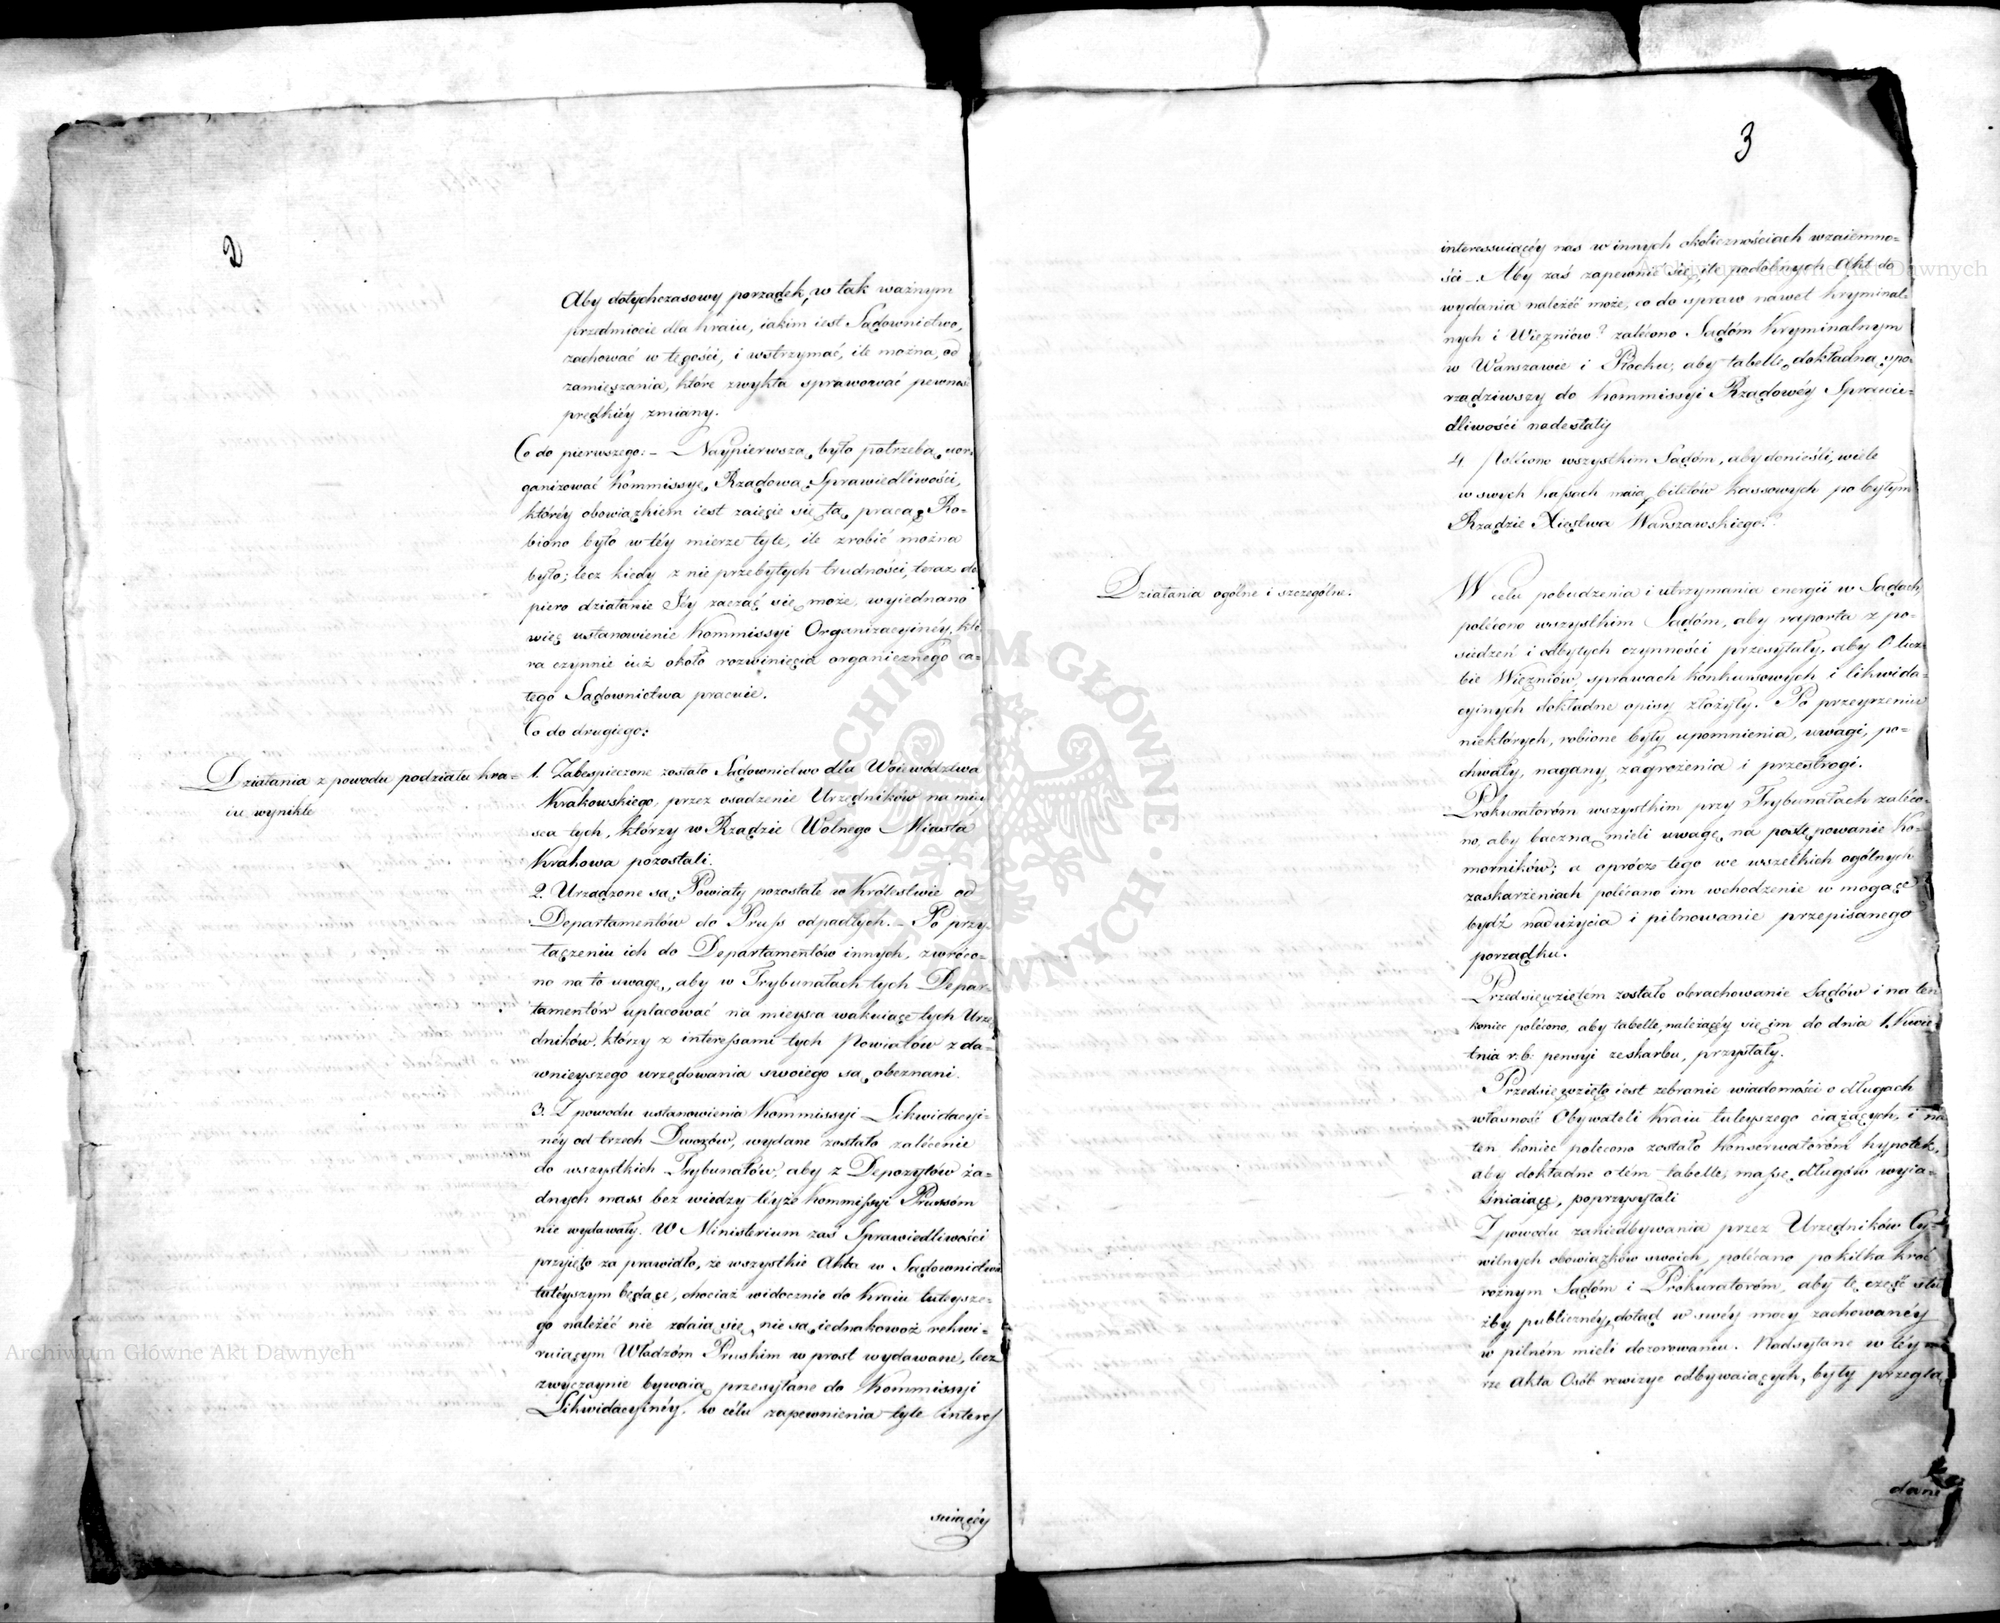 2
Aby dotychczasowy porządek, w tak ważnym
przedmiocie dla kraiu, iakim iest Sądownictwo,
zachować w tęgości, i wstrzymać, ile można, od
zamięszania, które zwykła sprawować pewność
prędkiéy zmiany.
Co do pierwszego: – Naypierwszą było potrzebą uor-
ganizować Kommissyę Rządową Sprawiedliwości,
któréy obowiązkiem iest zaięcie się tą pracą. Ro-
biono było w téy mierze tyle, ile zrobić można
było; lecz kiedy z nie przebytych trudności, teraz do
piero działanie Jéy zacząć się może, wyiednano
więc ustanowienie Kommissyi Organizacyinéy, któ-
ra czynnie iuż około rozwinięcia organicznego ca-
łego Sądownictwa pracuie.
Co do drugiego:
Działania z powodu podziału kra-
iu wynikłe
1. Zabespieczone zostało Sądownictwo dla Woiewództwa
Krakowskiego, przez osadzenie Urzędników na miey
sca tych, którzy w Rządzie Wolnego Miasta
Krakowa pozostali.
2. Urządzone są Powiaty pozostałe w Królestwie od
Departamentów do Pruss odpadłych. – Po przy-
łączeniu ich do Departamentów innych, zwróco-
no na to uwagę, aby w Trybunałach tych Depar-
tamentów uplacować na mieysca wakuiące tych Urzę-
dników, którzy z interessami tych Powiatów z da-
wnieyszego urzędowania swoiego są obeznani.
3. Z powodu ustanowienia Kommissyi Likwidacyi-
néy od trzech Dworów, wydane zostało zalécenie
do wszystkich Trybunałów, aby z Depozytów ża-
dnych mass bez wiedzy téyże Kommissyi Prussóm
nie wydawały. W Ministerium zaś Sprawiedliwości
przyięto za prawidło, że wszystkie Akta w Sądownictwie
tutéyszym będące, chociaż widocznie do Kraiu tuteysze-
go należéć nie zdaią się, nie są iednakowoż rekwi-
ruiącym Władzóm Pruskim wprost wydawane, lecz
zwyczaynie bywaią przesyłane do Kommissyi
Likwidacyinéy, w célu zapewnienia tyle interes
suiącéy
3
interessuiącéy nas w innych okolicznościach wzaiemno-
ści –. Aby zaś zapewnić się, ile podobnych Akt do
wydania należéć może, co do spraw nawet kryminal-
nych i Więźniów? zalécono Sądóm Kryminalnym
w Warszawie i Płocku, aby tabellę dokładną spo-
rządziwszy do Kommissyi Rządowéy Sprawie-
dliwości nadesłały
4. Polécono wszystkim Sądóm, aby doniosli, wiele
w swych kassach maią biletów kassowych po byłym
Rządzie Xięstwa Warszawskiego?
Działania ogólne i szczególne.
W celu pobudzenia i utrzymania energii w Sądach,
polécono wszystkim Sądóm, aby raporta z po-
siedzeń i odbytych czynności przesyłały, aby o licz-
bie Więźniów, sprawach konkursowych i likwida-
cyinych dokładne opisy złożyły. Po przeyrzeniu
niektórych, robione były upomnienia, uwagi, po-
chwały, nagany, zagrożenia i przestrogi.
Prokuratoróm wszystkim przy Trybunałach zaléco-
no, aby baczną mieli uwagę na postępowanie Ko-
morników; a oprócz tego we wszelkich ogólnych
zaskarżeniach polécano im wchodzenie w mogące
bydź nadużycia i pilnowanie przepisanego
porządku.
Przedsięwziętem zostało obrachowanie Sądów i na ten
koniec polécono, aby tabelle, należącéy się im do dnia 1. Kwie-
tnia r: b: pensyi ze skarbu, przysłały.
Przedsięwzięte iest zebranie wiadomości o długach
własność Obywateli kraiu tuteyszego ciążących, i na
ten koniec polecono zostało Konserwatoróm hypotek,
aby dokładne o tém tabelle, massę długów wyia-
śniaiące, poprzysyłali
Z powodu zaniedbywania przez Urzędników Cy-
wilnych obowiązków swoich, polécano po kilka kroć
różnym Sądóm i Prokuratoróm, aby tę część słu
żby publicznéy, dotąd w swéy mocy zachowanéy
w pilném mieli dozorowaniu. Nadsyłane w téy mie
rze Akta Osób rewizye odbywaiących, były przeglą
dane
Archiwum Główne Akt Dawnych
Archiwum Główne Akt Dawnych
ARCHIWUM GŁÓWNE AKT DAWNYCH